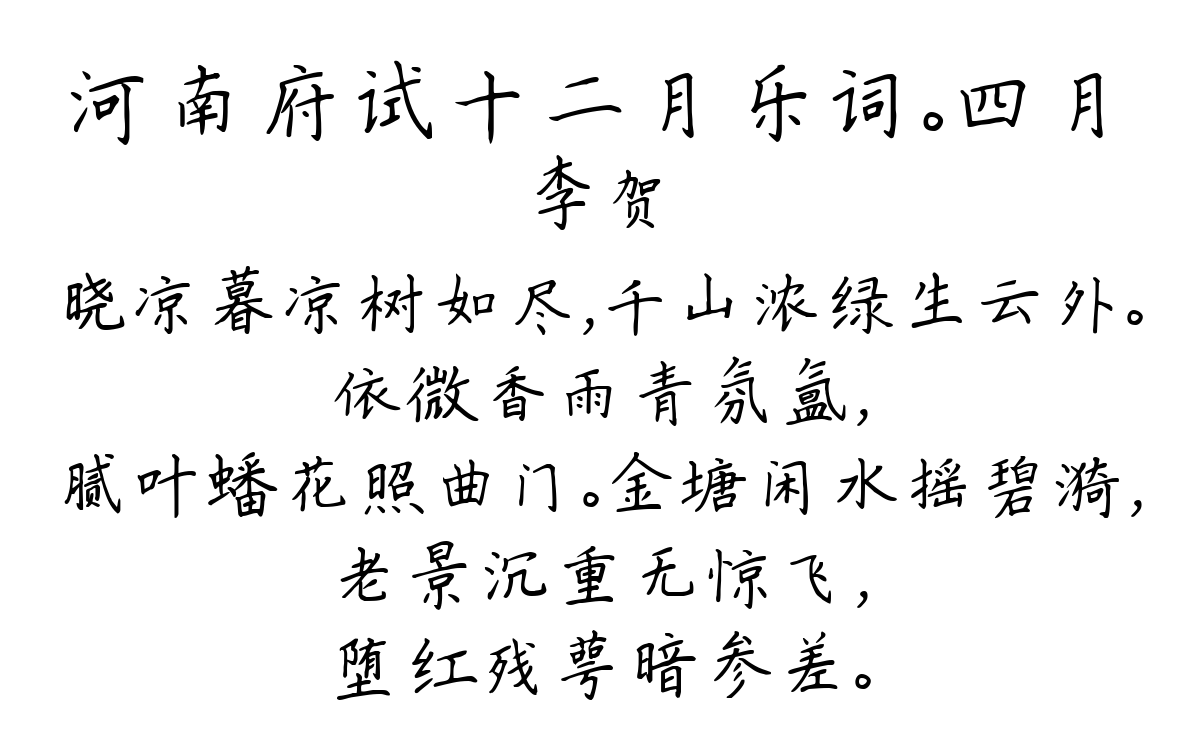 河南府试十二月乐词。四月
李贺
晓凉暮凉树如尽,千山浓绿生云外。
依微香雨青氛氲,
腻叶蟠花照曲门。金塘闲水摇碧漪,
老景沉重无惊飞,
堕红残萼暗参差。